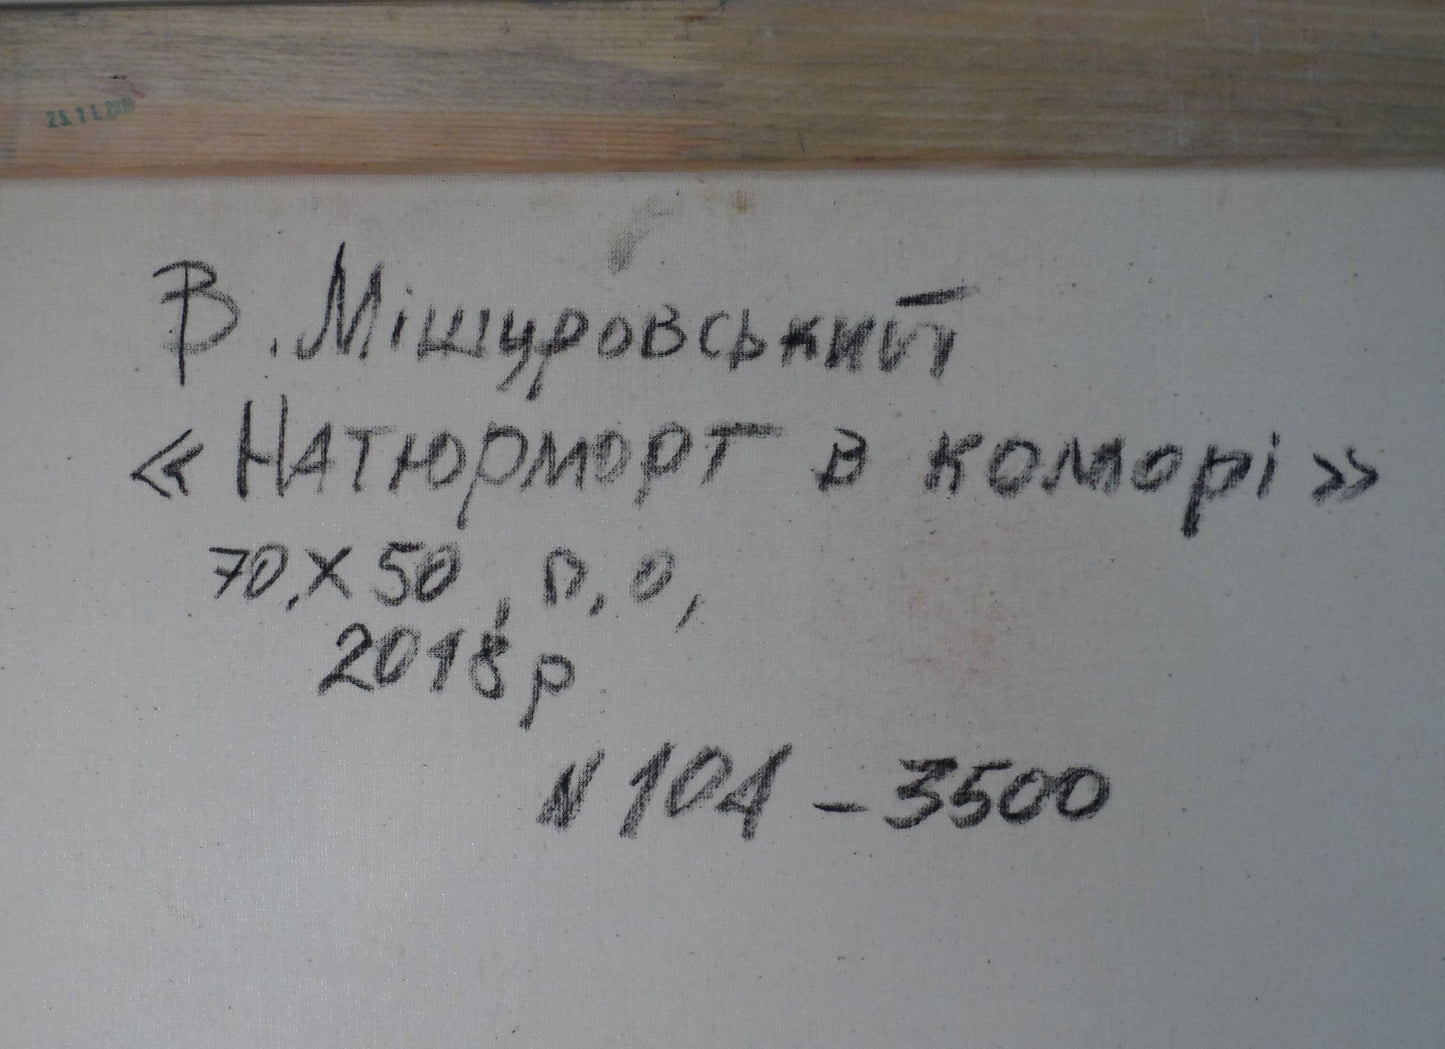 В. Мішуровський
«Натюрморт в коморі»
70.х50, п.о,
2018р
N 104 – 3500